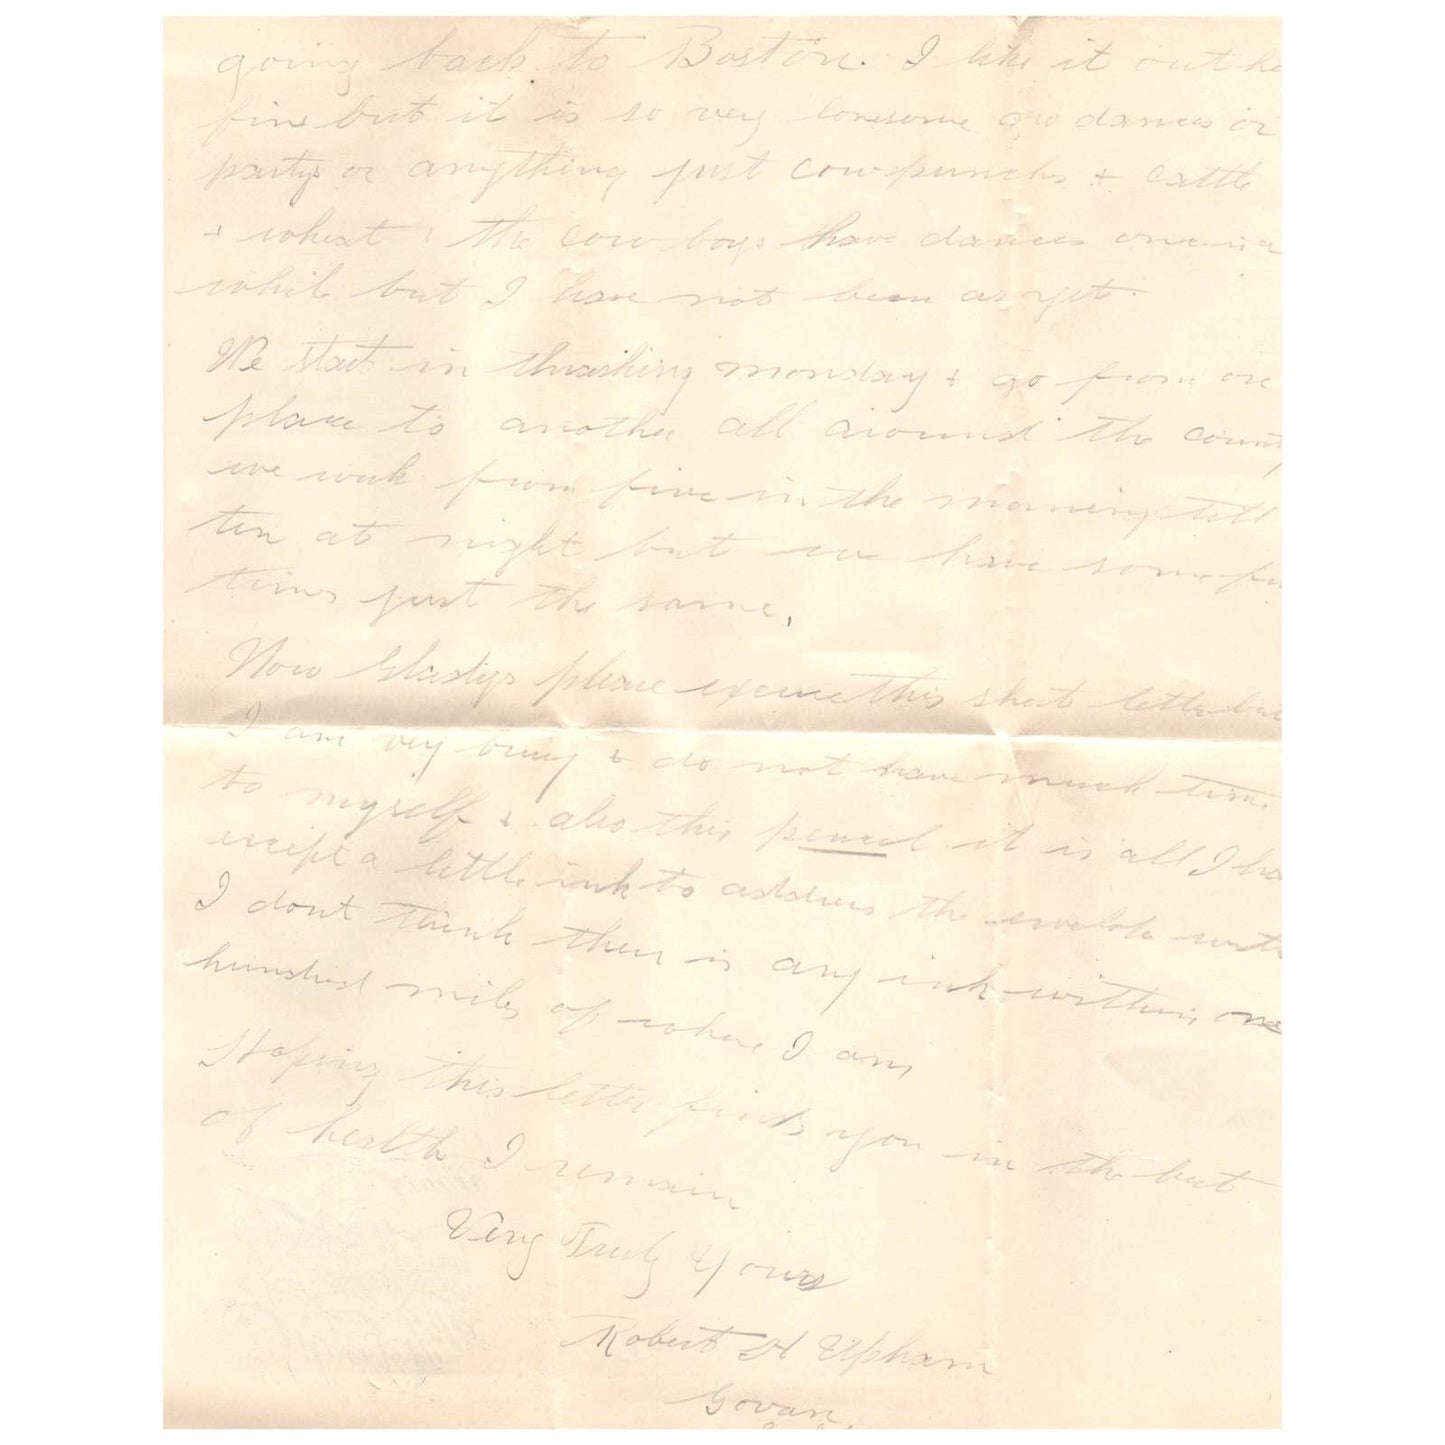 going back to Boston. I like it out he
fine but it is so very lonesome no dances or
partys or anything just cowpunchs + cattle
+ wheat, the cow boys have dances once in a
while but I have not been as yet.
We start in thrashing monday + go from one
place to another all around the county
we work from five in the morning till
ten at night but we have some fun
times just the same.
Now Gladys please excuse this short letter but
I am very busy + do not have much time
to myself + also this pencil it is all I ha
except a little ink to address the envelope with
I dont think there is any ink within one
hundred miles of where I am
Hoping this letter finds you in the best
of health I remain
Very Truly Yours
Robert H Upham
Govan,